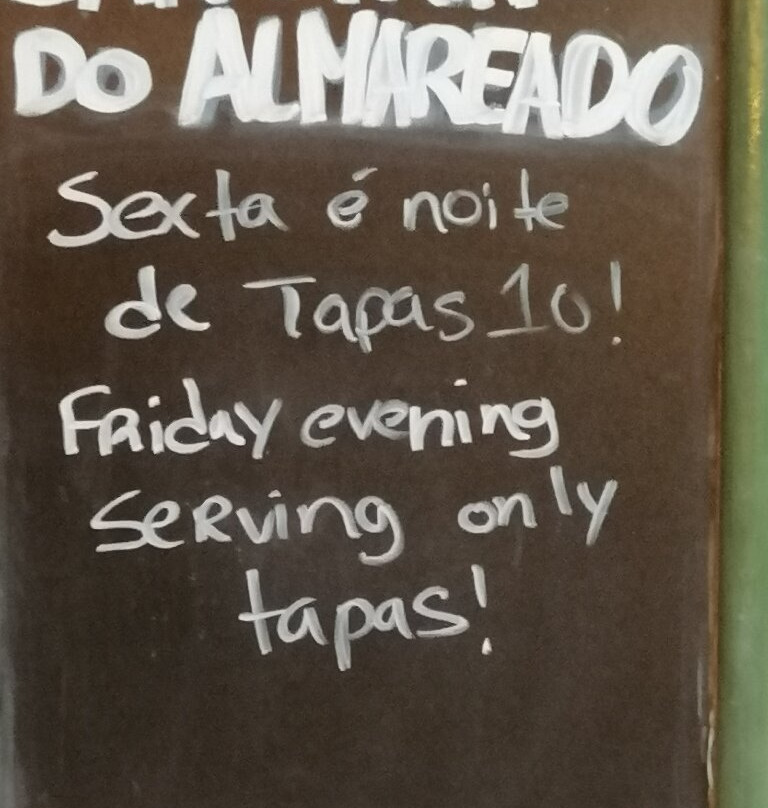 DO ALMAREADO
Sexta é noite
de Tapas 10!
Friday evening
serving only
tapas!